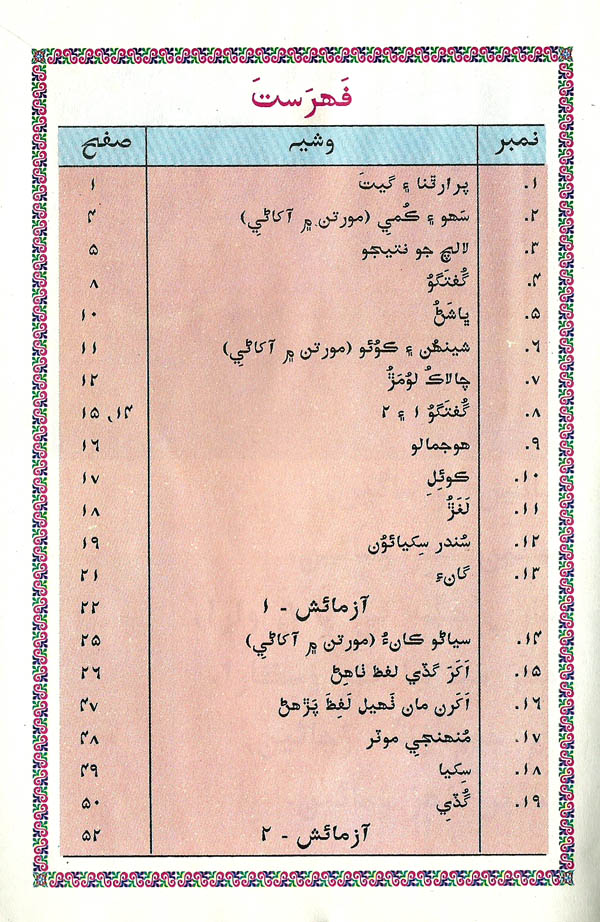 فَهرَستَ
نمبر وشيہ صفح
۱. پرارٿنا ۽ گيتَ ۱
۲. سَهو ۽ ڪُمي (مورتن ۾ آکاڻي) ۴
۳. لالچ جو نتيجو ۵
۴. گُفتگوُ ۸
۵. ڀاشَڻُ ۱۰
۶. شينهُن ۽ ڪوُئو (مورتن ۾ آکاڻي) ۱۱
۷. چالاڪُ لوُمَڙُ ۱۲
۸. گُفتگوُ ۱ ۽ ۲ ۱۴، ۱۵
۹. هوجمالو ۱۶
۱۰. ڪوئِلِ ۱۷
۱۱. لَغَڙُ ۱۸
۱۲. سُندر سِکيائوُن ۱۹
۱۳. گانءِ ۲۱
آزمائش - ۱ ۲۲
۱۴. سياڻو ڪانءُ (مورتن ۾ آکاڻي) ۲۵
۱۵. اَکَرَ گڏي لفظ ٺاهِڻ ۲۶
۱۶. اَکَرن مان ٺَهيل لَفِظَ پَڙهڻ ۴۷
۱۷. مُنهنجي موٽر ۴۸
۱۸. سِکيا ۴۹
۱۹. گُڏي ۵۰
آزمائش - ۲ ۵۲